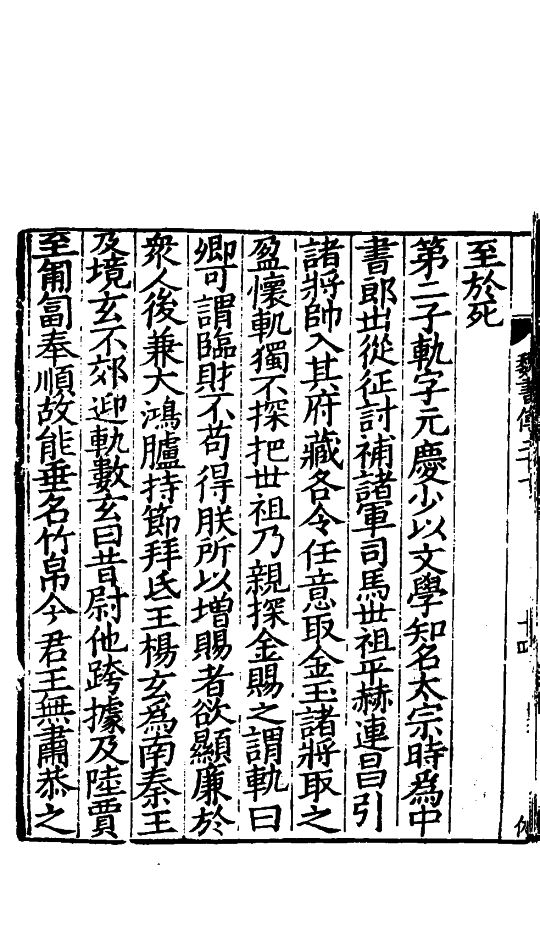 至於死
第二子軌字元慶少以文學知名太宗時爲中
書郎世從征討補諸軍司馬世祖平赫連昌引
諸將帥入其府藏各令任意取金玉諸將取之
盈懷軌獨不探把世祖乃親探金賜之謂軌曰
卿可謂臨財不苟得朕所以增賜者欲顯廉於
衆人後兼大鴻臚持節拜氐王楊玄爲南秦王
及境玄不郊迎軌數玄曰昔尉他跨據及陸賈
至匍匐奉順故能垂名竹帛今君王無肅恭之